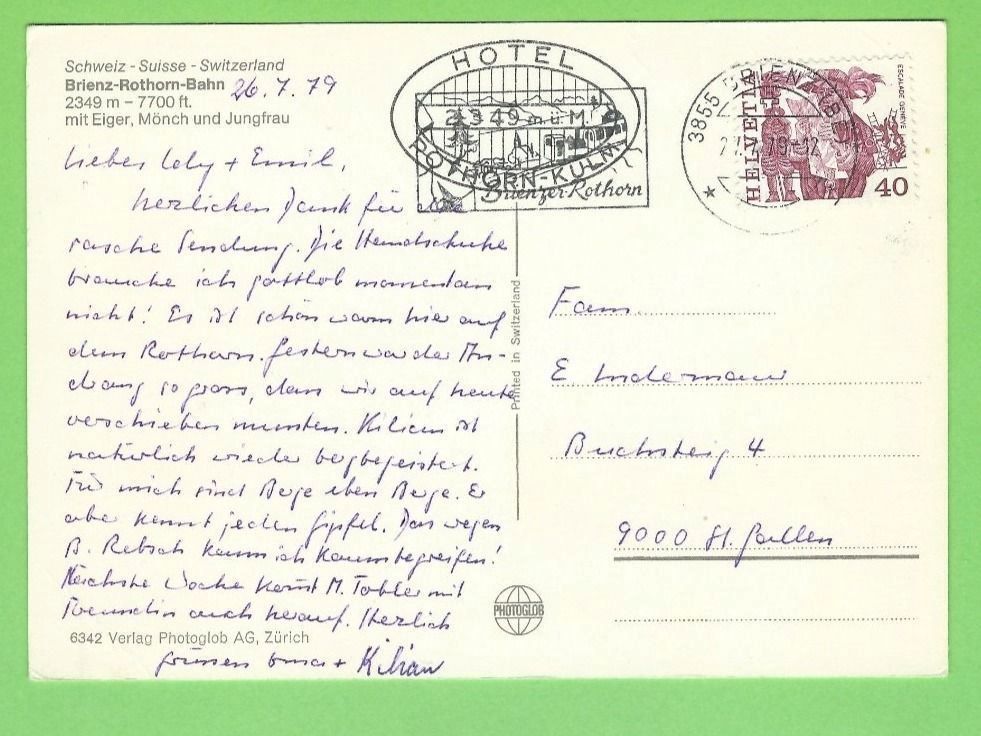 Schweiz - Suisse - Switzerland
Brienz-Rothorn-Bahn 26.7.79
2349 m – 7700 ft.
mit Eiger, Mönch und Jungfrau
HOTEL
2349 m ü. M.
ROTHORN-KULM
Brienzer Rothorn
3855 BRIENZ (BE)
HELVETIA
ESCALADE GENÈVE
40
Lieber Loly + Emil,
Herzlichen Dank für
rasche Sendung. Die Handschuhe
brauche ich gottlob momentan
nicht! Es ist schön warm hier auf
dem Rothorn. Gestern war der An-
drang so gross, dass wir auf heute
verschieben mussten. Kilian ist
natürlich wieder bergbegeistert.
Für mich sind Berge eben Berge. Er
aber kennt jeden Gipfel. Das wegen
B. Rebsch kann ich kaum begreifen!
Nächste Woche kommt M. Tobler mit
Freundin auch herauf. Herzlich
grüssen + Kilian
Fam.
E Lindermann
Buchsteig 4
9000 St. Gallen
Printed in Switzerland
PHOTOGLOB
6342 Verlag Photoglob AG, Zürich